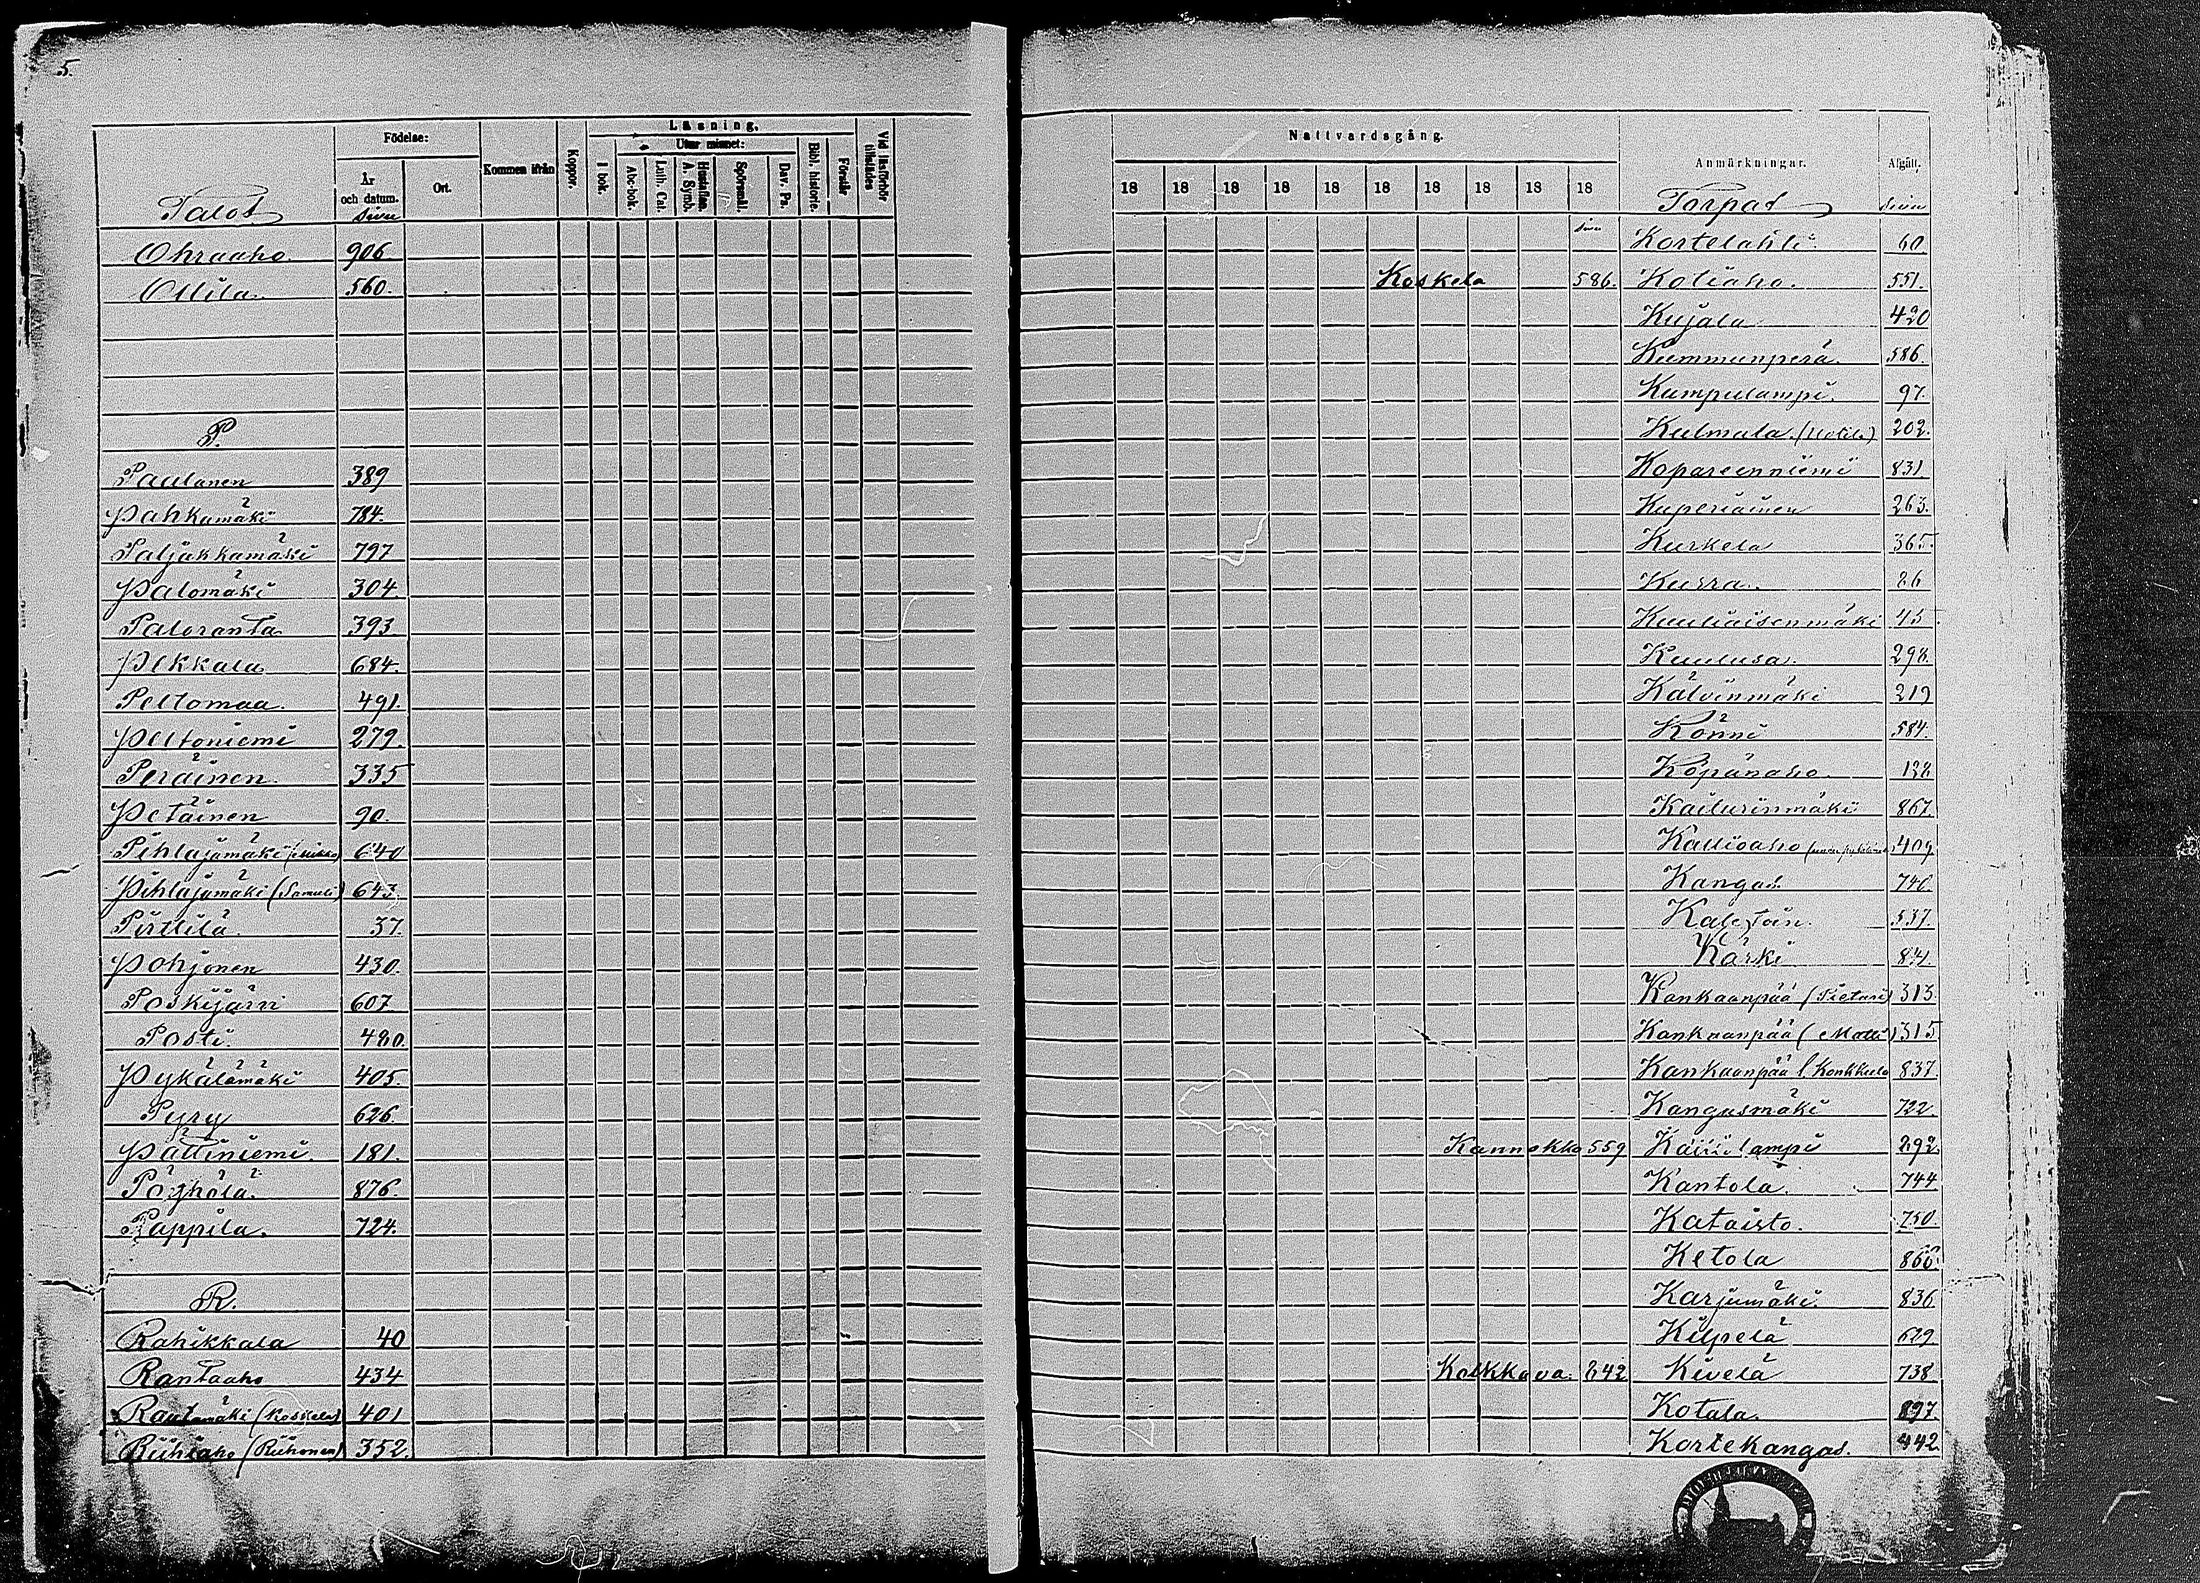 5.
Födelse:
Läsning.
Utur minnet:
År
och datum.
Ort.
Kommen ifrån
Koppor.
I bok.
Abc-bok.
Luth. Cat.
Hustaflan.
A. Symb.
Spörsmål.
Dav. Ps.
Bibl. historie.
Förstår
Vid läsförhör
tillstädes
Talot sivu
Ohraaho 906
Ollila. 560.
P.
Paulanen 389
Pahkamäki 784.
Paljakkamäki 797
Palomäki 304.
Paloranta 393.
Pekkala 684.
Peltomaa. 491.
Peltoniemi 279.
Peräinen. 335
Petäinen 90.
Pihlajamäki (Mikko) 640
Pihlajamäki (Samuli) 643
Pirttilä. 37.
Pohjonen 430.
Poskijärvi 607
Posti. 480.
Pykälämäki 405.
Pyry 626.
Pättiniemi. 181.
Pöyhölä. 876.
Pappila. 724.
R.
Rahikkala 40
Rantaaho 434
Rautamäki (Koskela) 401
Riihiaho (Riihonen) 352.
Nattvardsgång.
Anmärkningar.
Afgått.
18 18 18 18 18 18 18 18 18 18
Torpat sivu
sivu Kortelahti 60.
Koskela 586. Kotiaho. 551.
Kujala 420
Kummunperä. 586.
Kumpulampi. 97.
Kulmala. (Uotila) 202.
Kopareenniemi 831.
Kuperiäinen 263.
Kurkela 365.
Kurra. 26
Kuuliaisenmäki 45.
Kuulusa. 298.
Kälvinmäki 219
Könni 584.
Köpänaho. 128
Kailurinmäki 867.
Kallioaho 409
Kangas. 740.
Kärki
Kankaanpää (Pietari) 313.
Kankaanpää (Matti) 315
Kankaanpää l. Konkkula 837.
Kangasmäki 722.
Kannokko 559 892.
Kantola. 744
Kataisto. 750.
Ketola
Karjumäki. 836
Kilpelä 629
Kolkkava. 842 Kivelä 738
Kotala. 897.
Kortekangas. 442